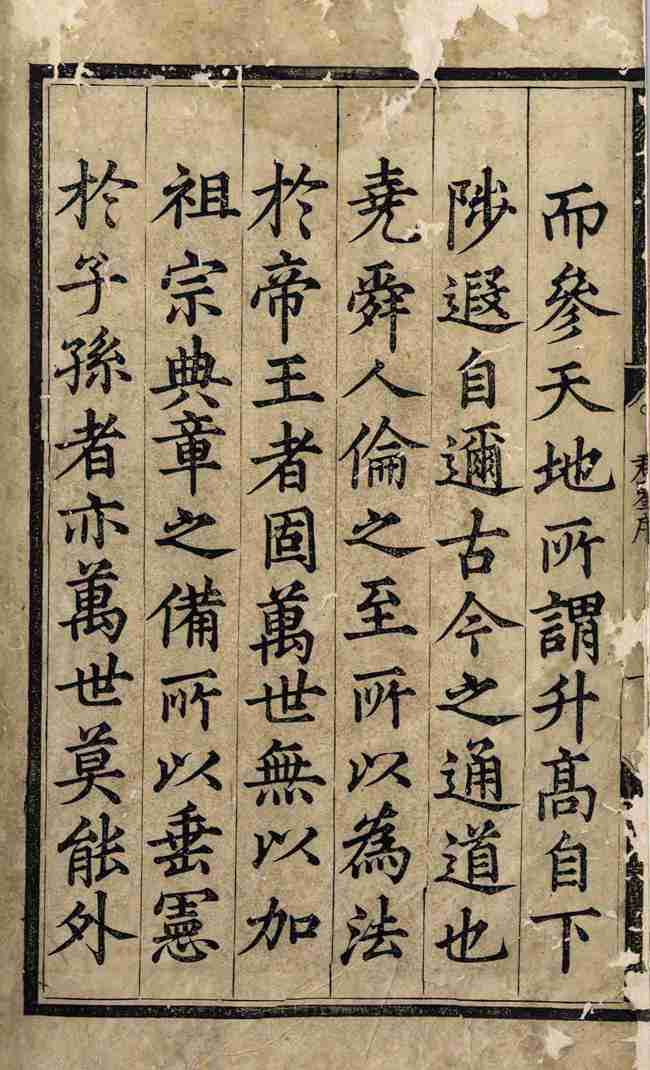 而參天地所謂升髙自下
陟遐自邇古今之通道也
堯舜人倫之至所以為法
於帝王者固萬世無以加
祖宗典章之備所以垂憲
於子孫者亦萬世莫能外